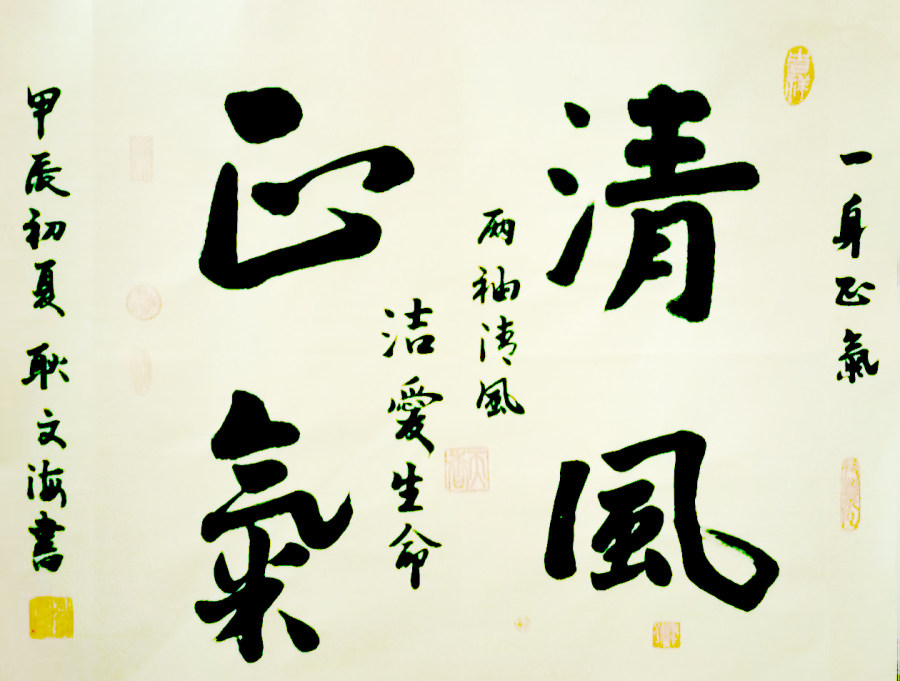 一身正氣
清風
兩袖清風
洁愛生命
正氣
甲辰初夏 耿文海書
吉祥